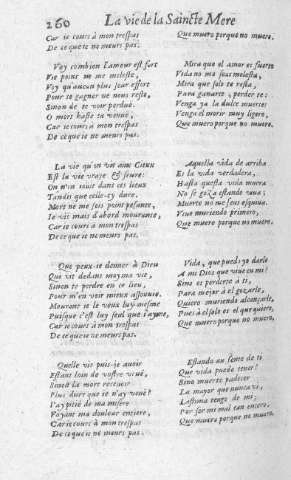 260 La vie de la Saincte Mere
Car ie cours à mon trespas
De ce que ie ne meurs pas.
Voy combien l'amour est fort
Vie point ne me moleste,
Voy qu'aucun plus seur effort
Pour te gagner ne nous reste,
Sinon de te voir perduë.
O mort haste ta venuë,
Car ie cours à mon trespas
De ce que ie ne meurs pas.
La vie qu'on vit aux Cieux
Est la vie vraye & seure:
On n'en iouit dans ces lieux
Tandis que celle-cy dure.
Mort ne me sois point pesante,
Ie vis mais d'abord mourante,
Car ie cours à mon trespas
De ce que ie ne meurs pas.
Que peux-ie donner à Dieu
Qui vit dedans moy ma vie,
Sinon te perdre en ce lieu,
Pour m'en voir mieux assouuie.
Mourant ie le veux luy mesme
Puisque c'est luy seul que i'ayme,
Car ie cours à mon trespas
De ce que ie ne meurs pas.
Quelle vie puis-ie auoir
Estant loin de vostre veuë,
Sinon la mort receuoir
Plus dure que ie n'ay veuë?
I'ay pitié de ma misere
Voyant ma douleur entiere,
Car ie cours à mon trespas
De ce que ie ne meurs pas.
Que muero porque no muero.
Mira que el amor es fuerte
Vida no me seas molesta,
Mira que solo te resta,
Para ganarte, perderte:
Venga ya la dulce muerte
Venga el morir muy ligero,
Que muero porque no muero.
Aquella vida de arriba
Es la vida verdadera,
Hasta que esta vida muera
No se goza estando viua.
Muerte no me seas esquiua.
Viua muriendo primero,
Que muero porque no muero.
Vida, que puedo yo darle
A mi Dios que viue en mi?
Sino es perderte a ti,
Para mejor à el gozarle,
Quiero muriendo alcançarle,
Pues à el solo es el que quiero,
Que muero porque no muero.
Estando ausente de ti
Que vida puedo tener?
Sino muerte padecer
La mayor que nunca vi,
Lastima tengo de mi,
Por ser mi mal tan entero.
Que muero porque no muero.